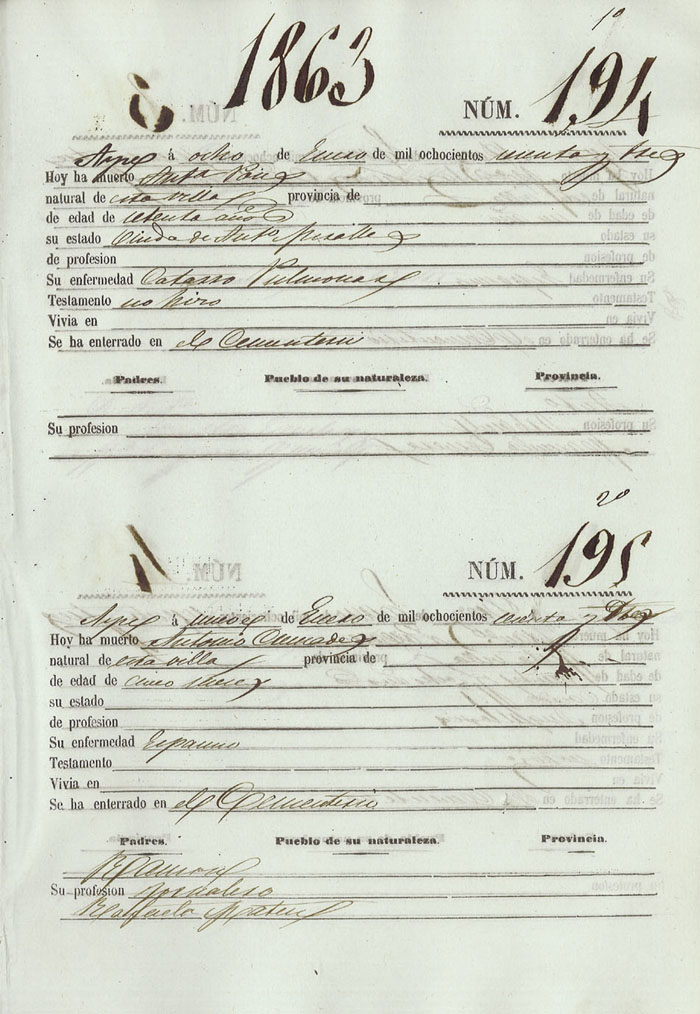 1863
1º
NÚM. 194
Aspe á ocho de Enero de mil ochocientos sesenta y tres
Hoy ha muerto
natural de esta villa provincia de
de edad de setenta años
su estado Viuda de Antº
de profesion
Su enfermedad Catarro Pulmonar
Testamento no hizo
Vivia en
Se ha enterrado en el Cementerio
Padres. Pueblo de su naturaleza. Provincia.
Su profesion
2º
NÚM. 195
Aspe á nueve de Enero de mil ochocientos sesenta y tres
Hoy ha muerto Antonio
natural de esta villa provincia de
de edad de cinco meses
su estado
de profesion
Su enfermedad Espasmo
Testamento
Vivia en
Se ha enterrado en el Cementerio
Padres. Pueblo de su naturaleza. Provincia.
Ramon
Su profesion Jornalero
Rafaela